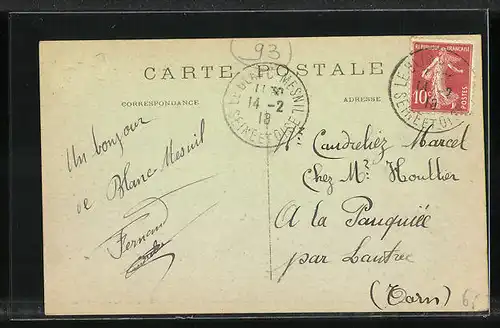 93
CARTE POSTALE
CORRESPONDANCE
ADRESSE
LE BLANC MESNIL
14 -2
18
SEINE ET OISE
REPUBLIQUE FRANÇAISE
10
POSTES
Un bonjour
de Blanc Mesnil
Fernand
Mr Caudreliez Marcel
Chez Mr Houllier
A la Panquiée
par Lautrec
(Tarn)
6,-